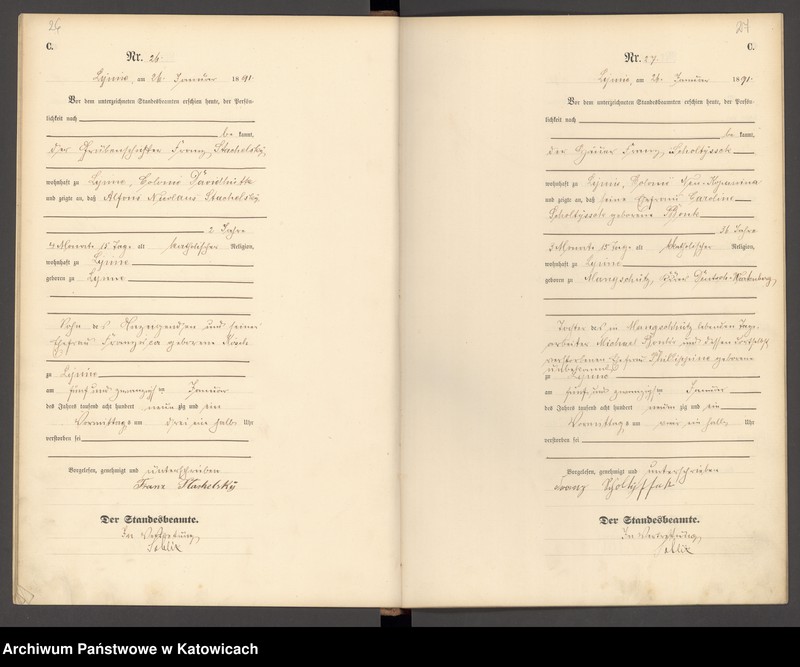 26
C.
Nr. 26.
am 26. Januar 1891.
Vor dem unterzeichneten Standesbeamten erschien heute, der Persön-
lichkeit nach
be kannt,
der Franz Stachelsky,
wohnhaft zu Colonie Davidhütte
und zeigte an, daß Alfons Stachelsky
2 Jahre
4 Monate 15 Tage alt katholischer Religion,
wohnhaft zu
geboren zu
Sohn des Anzeigenden und seiner
Ehefrau Franziska geborene
zu
am fünf und zwanzigsten Januar
des Jahres tausend acht hundert neun zig und ein
Vormittags um drei ein halb Uhr
verstorben sei
Vorgelesen, genehmigt und unterschrieben
Franz Stachelsky
Der Standesbeamte.
In Vertretung,
27
C.
Nr. 27.
am 26. Januar 1891.
Vor dem unterzeichneten Standesbeamten erschien heute, der Persön-
lichkeit nach
be kannt,
der Häuer Franz Scholtyssek
wohnhaft zu Colonie Neu-Kopanina
und zeigte an, daß seine Ehefrau Caroline
Scholtyssek geborene
36 Jahre
3 Monate 15 Tage alt katholischer Religion,
wohnhaft zu
geboren zu Mangschütz, Wartenberg,
Tochter des in Mangschütz lebenden Tage-
arbeiter Michael und dessen
verstorbenen Ehefrau geborene
unbekannt
zu
am fünf und zwanzigsten Januar
des Jahres tausend acht hundert neun zig und ein
Vormittags um ein halb Uhr
verstorben sei
Vorgelesen, genehmigt und unterschrieben
Franz
Der Standesbeamte.
In Vertretung,
Archiwum Państwowe w Katowicach